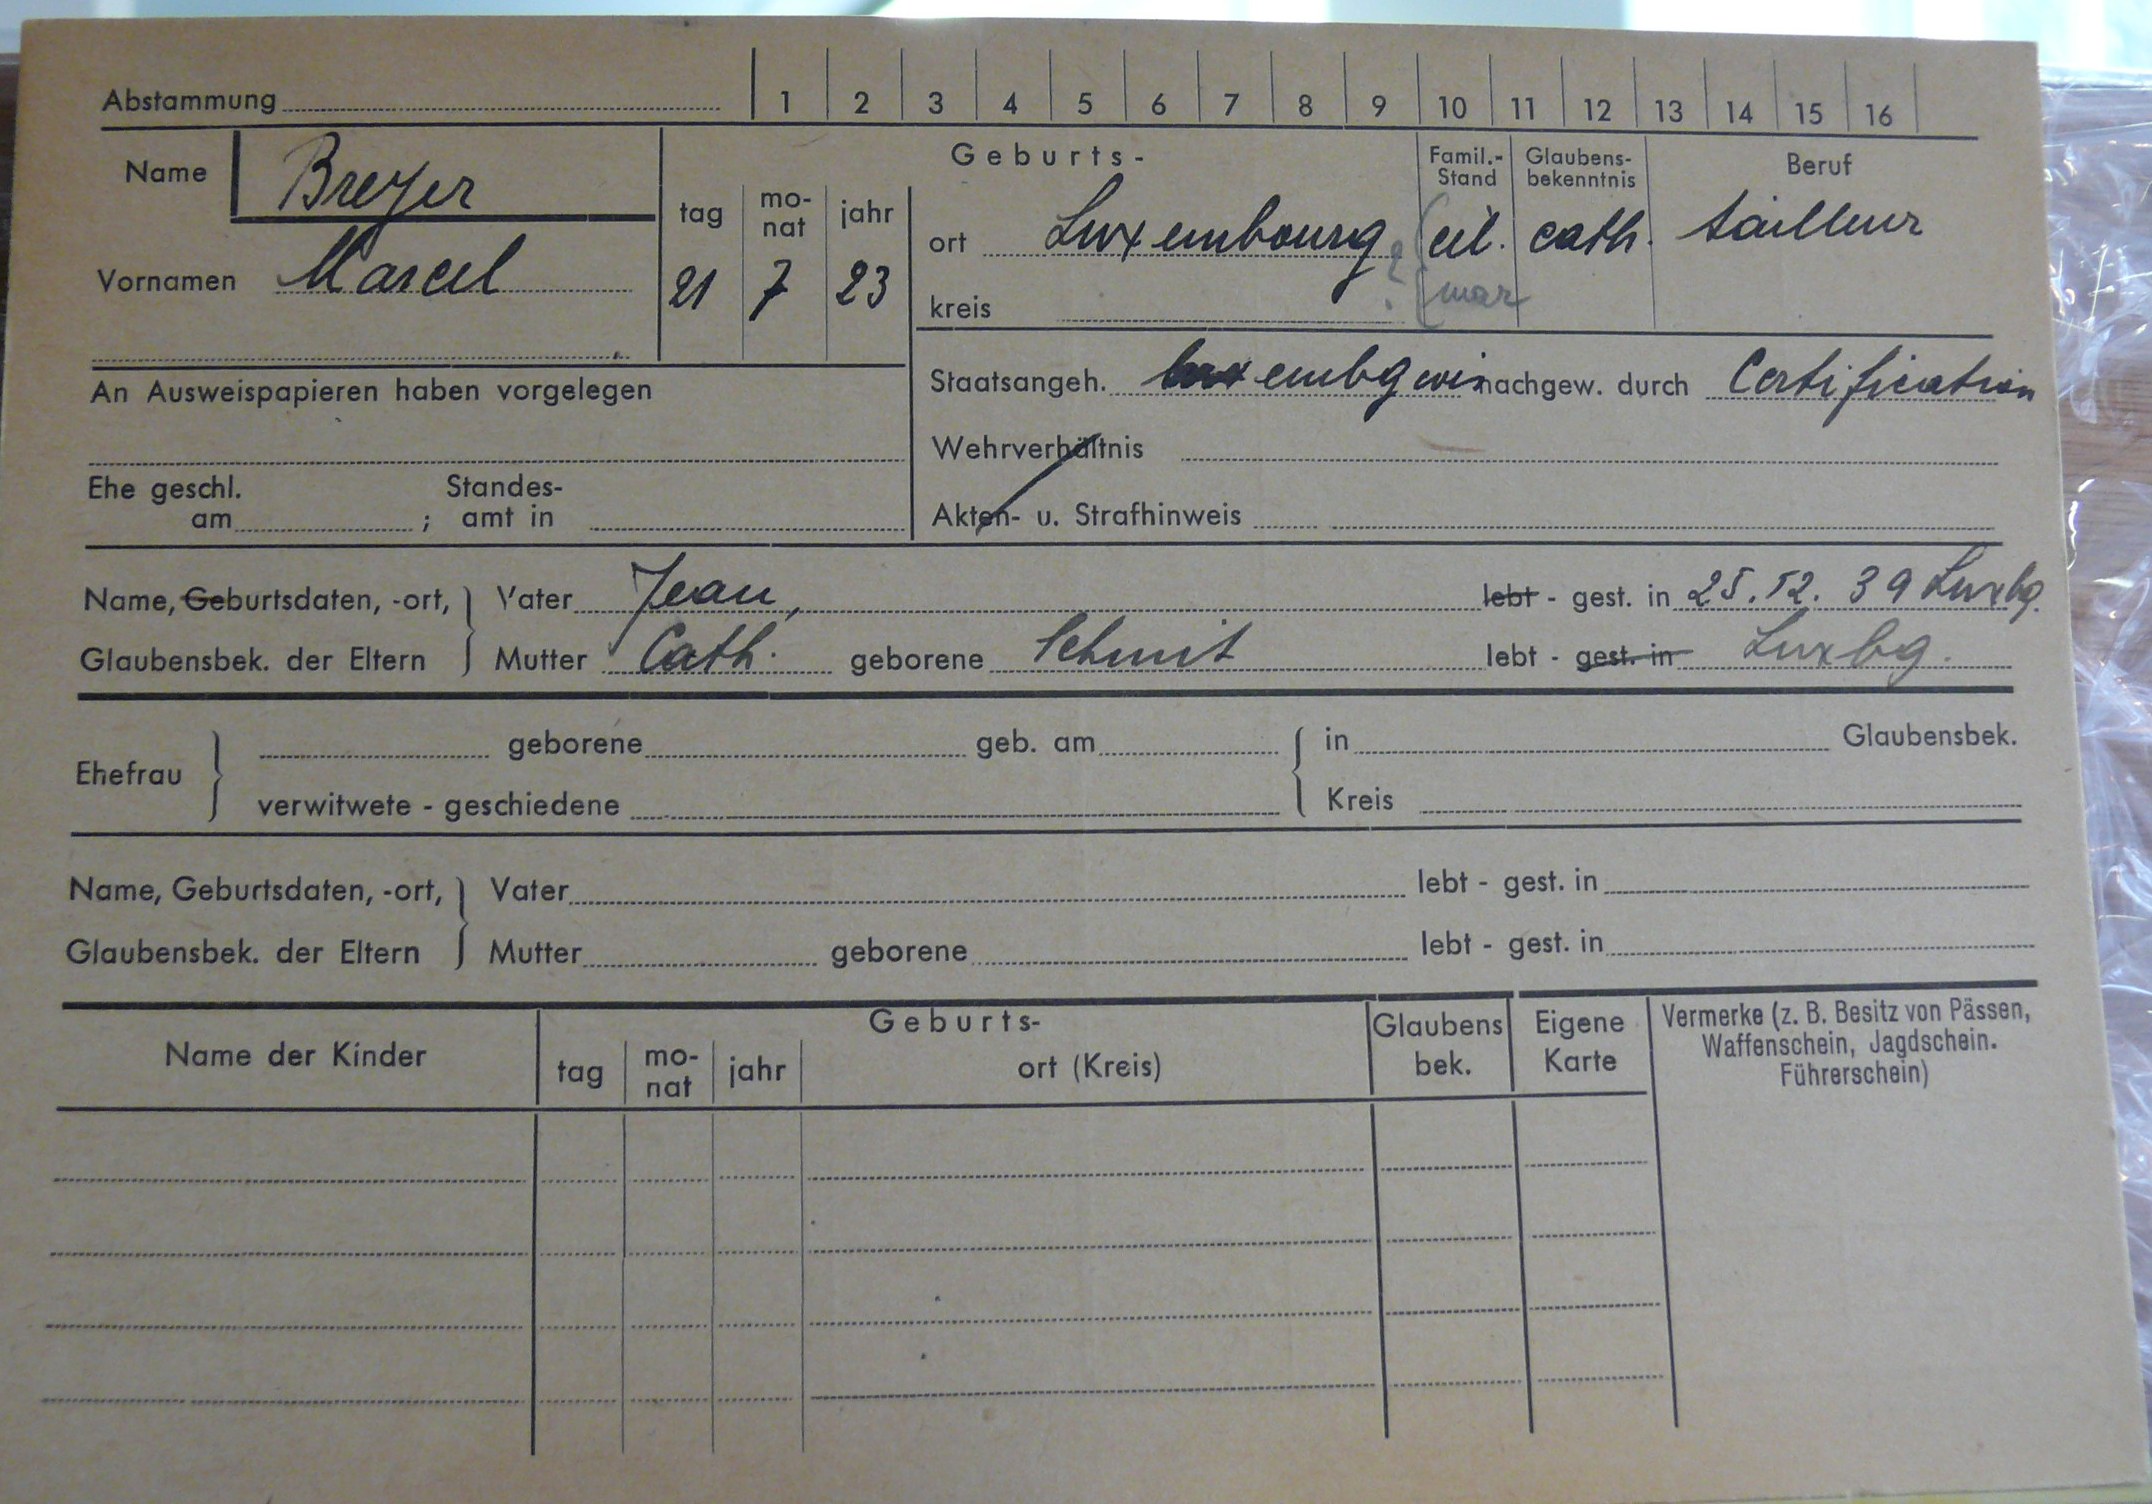 Abstammung 1 2 3 4 5 6 7 8 9 10 11 12 13 14 15 16
Name Breyer
Vornamen Marcel
Geburts-
tag mo-nat jahr
21 7 23
ort Luxembourg
kreis
Famil.-Stand
cél.
? mar
Glaubens-bekenntnis
cath.
Beruf
tailleur
An Ausweispapieren haben vorgelegen
Ehe geschl. am ; Standes-amt in
Staatsangeh. luxembgeois nachgew. durch Certification
Wehrverhältnis
Akten- u. Strafhinweis
Name, Geburtsdaten, -ort, Vater Jean, lebt - gest. in 25.12.39 Luxbg.
Glaubensbek. der Eltern Mutter Cath. geborene Schmit lebt - gest. in Luxbg.
Ehefrau
geborene geb. am in Glaubensbek.
verwitwete - geschiedene Kreis
Name, Geburtsdaten, -ort, Vater lebt - gest. in
Glaubensbek. der Eltern Mutter geborene lebt - gest. in
Name der Kinder
Geburts-
tag mo-nat jahr ort (Kreis)
Glaubens bek.
Eigene Karte
Vermerke (z. B. Besitz von Pässen,
Waffenschein, Jagdschein.
Führerschein)